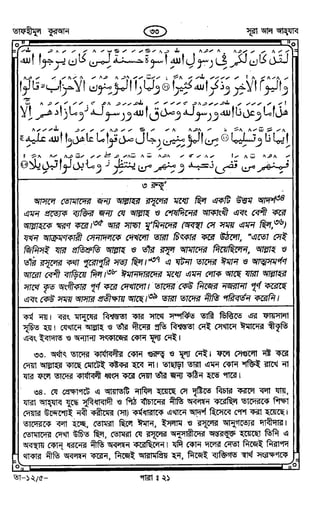 তাফহীমুল কুরআন
৩৩
সূরা আল আহযাব
لَقَدْ كَانَ لَكُمْ فِي رَسُولِ اللَّهِ أُسْوَةٌ حَسَنَةٌ لِّمَن كَانَ يَرْجُوا اللَّهَ
وَالْيَوْمَ الْآخِرَ وَذَكَرَ اللَّهَ كَثِيرًا ۝ وَلَمَّا رَأَ الْمُؤْمِنُونَ الْأَحْزَابَ ۙ قَالُوا
هَٰذَا مَا وَعَدَنَا اللَّهُ وَرَسُولُهُ وَصَدَقَ اللَّهُ وَرَسُولُهُ ۚ وَمَا زَادَهُمْ إِلَّا
إِيمَانًا وَتَسْلِيمًا ۝ مِنَ الْمُؤْمِنِينَ رِجَالٌ صَدَقُوا مَا عَاهَدُوا اللَّهَ عَلَيْهِ ۚ
فَمِنْهُم مَّن قَضَىٰ نَحْبَهُ وَمِنْهُم مَّن يَنتَظِرُ ۖ وَمَا بَدَّلُوا تَبْدِيلًا ۝
৩ রুকূ'
আসলে তোমাদের জন্য আল্লাহর রসূলের মধ্যে ছিল একটি উত্তম আদর্শ৩৪
এমন প্রত্যেক ব্যক্তির জন্য যে আল্লাহ ও শেষদিনের আকাংখী এবং বেশী করে
আল্লাহকে স্মরণ করে।৩৫ আর সাচ্চা মু'মিনদের (অবস্থা সে সময় এমন ছিল,৩৬)
যখন আক্রমণকারী সেনাদলকে দেখলো তারা চিৎকার করে উঠলো, "এতো সেই
জিনিসই যার প্রতিশ্রুতি আল্লাহ ও তাঁর রসূল আমাদের দিয়েছিলেন, আল্লাহ ও
তাঁর রসূলের কথা পুরোপুরি সত্য ছিল।"৩৭ এ ঘটনা তাদের ঈমান ও আত্মসমর্পণ
আরো বেশী বাড়িয়ে দিল।৩৮ ঈমানদারদের মধ্যে এমন লোক আছে যারা আল্লাহর
সাথে কৃত অংগীকার পূর্ণ করে দেখালো। তাদের কেউ নিজের নজরানা পূর্ণ করেছে
এবং কেউ সময় আসার প্রতীক্ষায় আছে।৩৯ তারা তাদের নীতি পরিবর্তন করেনি।
কর্ম নয়। বরং মানুষের বিশ্বস্ততা কার সাথে সম্পর্কিত তারি ভিত্তিতে এর ফায়সালা
সূচিত হয়। যেখানে আল্লাহ ও তাঁর দীনের প্রতি বিশ্বস্ততা নেই সেখানে ঈমানের স্বীকৃতি
এবং ইবাদাত ও অন্যান্য সৎকাজের কোন মূল্য নেই।
৩৩. অর্থাৎ তাদের কার্যাবলীর কোন গুরুত্ব ও মূল্য নেই। ফলে সেগুলো নষ্ট করে
দেয়া আল্লাহর কাছে মোটেই কষ্টকর হবে না। তাছাড়া তারা এমন কোন শক্তিই রাখে না
যার ফলে তাদের কার্যাবলী ধ্বংস করে দেয়া তাঁর জন্য কঠিন হতে পারে।
৩৪. যে প্রেক্ষাপটে এ আয়াতটি নাযিল হয়েছে সে দৃষ্টিতে বিচার করলে বলা যায়,
যারা আহযাব যুদ্ধে সুবিধাবাদী ও পিঠ বাঁচানোর নীতি অবলম্বন করেছিল তাদেরকে শিক্ষা
দেয়ার উদ্দেশ্যেই নবী করীমের (সা) কর্মধারাকে এখানে আদর্শ হিসেবে পেশ করা হয়েছে।
তাদেরকে বলা হচ্ছে, তোমরা ছিলে ঈমান, ইসলাম ও রসূলের আনুগত্যের দাবীদার।
তোমাদের দেখা উচিত ছিল, তোমরা যে রসূলের অনুসারীদের অন্তরভুক্ত হয়েছো তিনি এ
অবস্থায় কোন্ ধরনের নীতি অবলম্বন করেছিলেন। যদি কোন দলের নেতা নিজেই নিরাপদ
থাকার নীতি অবলম্বন করেন, নিজেই আরামপ্রিয় হন, নিজেই ব্যক্তিগত স্বার্থ সংরক্ষণকে
তা-১২/৫-
পারা ঃ ২১